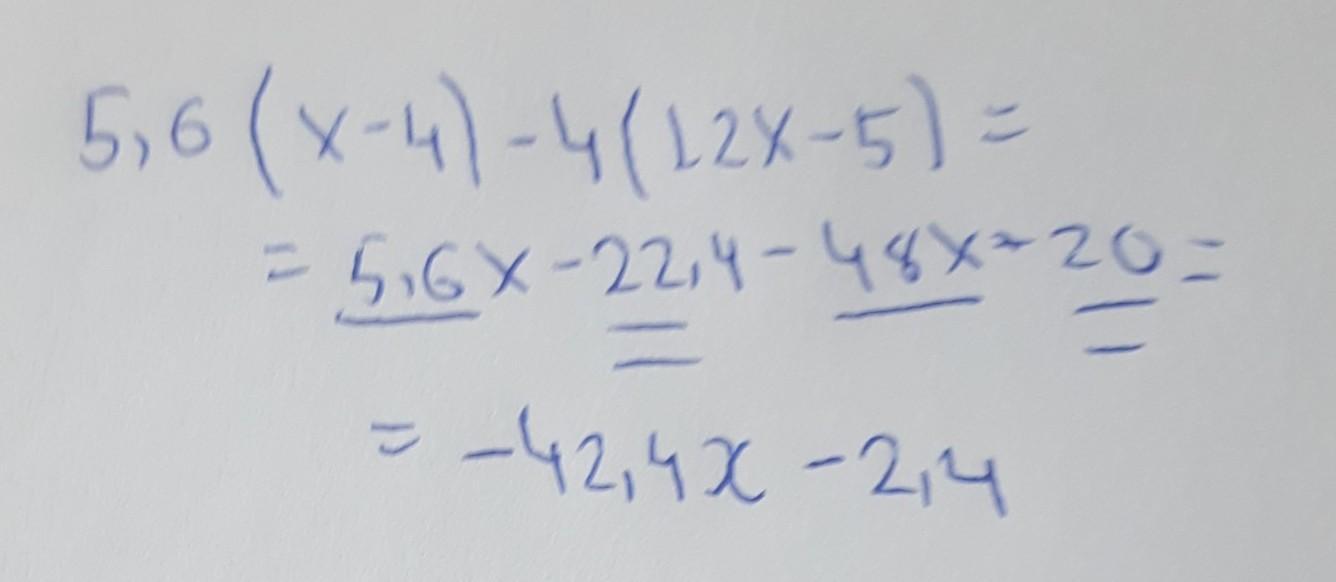 5,6 (x-4) - 4(12x-5) =
= 5,6x - 22,4 - 48x - 20 =
= -42,4x - 2,4